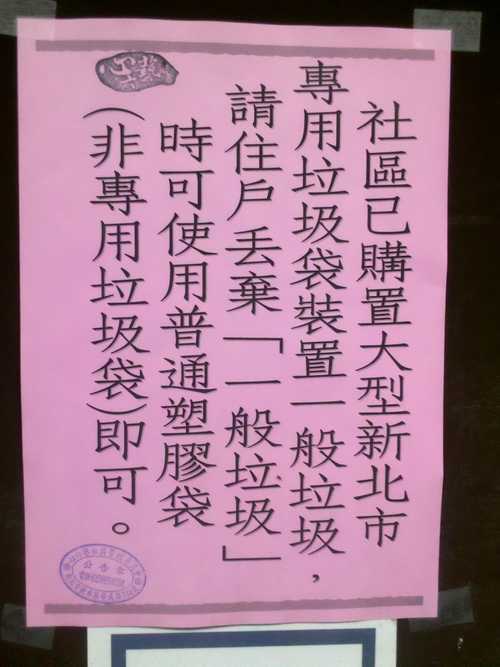 社區已購置大型新北市
專用垃圾袋裝置一般垃圾,
請住戶丟棄「一般垃圾」
時可使用普通塑膠袋
(非專用垃圾袋)即可。
公告章